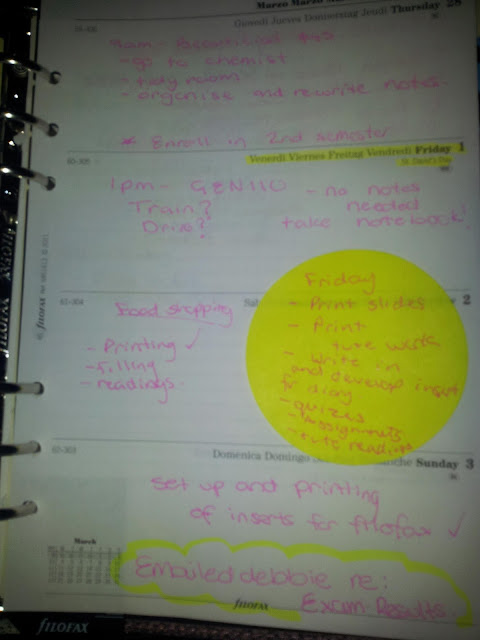 Marzo Marzo
Giovedi Jueves Donnerstag Jeudi Thursday 28
- go to chemist
- tidy room
- organise and rewrite notes
* Enroll in 2nd semester
60-305
Venerdi Viernes Freitag Vendredi Friday 1
St. David's Day
1pm - GEN110 - no notes
Train? needed
Drive? take notebook!
61-304
2
Food shopping
- Printing ✓
- filling
- readings
Friday
- Print slides
- Print
tute works
- Write in
and develop insert
for diary
- quizes
- Assignments
- tute readings
62-303
Domenica Domingo Sunday 3
Set up and printing
of inserts for filofax ✓
March
Emailed debbie re:
Exam Results.
filofax
FILOFAX